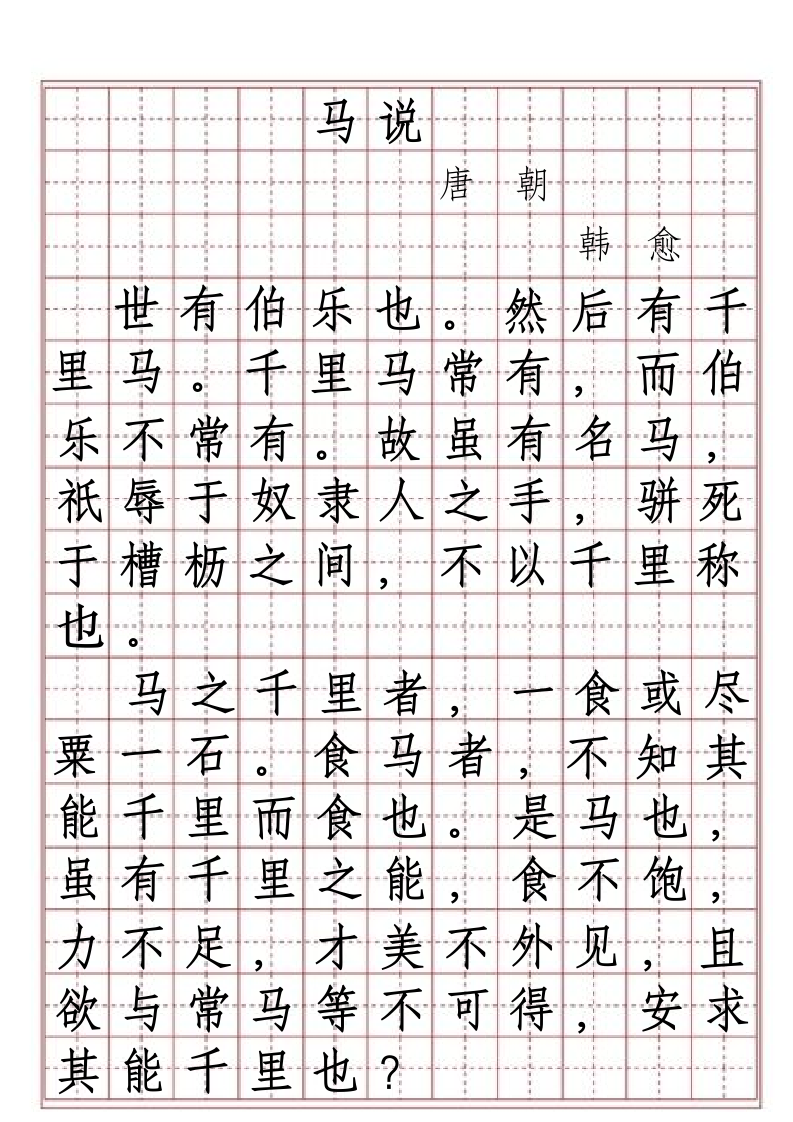 马说
唐 朝
韩 愈
世有伯乐也。然后有千
里马。千里马常有，而伯
乐不常有。故虽有名马，
祇辱于奴隶人之手，骈死
于槽枥之间，不以千里称
也。
马之千里者，一食或尽
粟一石。食马者，不知其
能千里而食也。是马也，
虽有千里之能，食不饱，
力不足，才美不外见，且
欲与常马等不可得，安求
其能千里也？